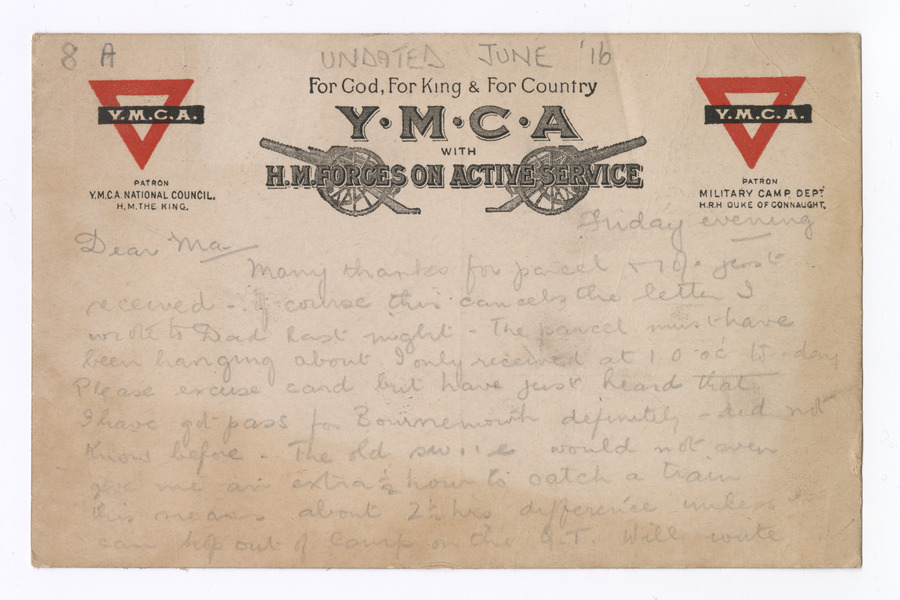 8 A UNDATED JUNE '16
For God, For King & For Country
Y·M·C·A
WITH
H.M. FORCES ON ACTIVE SERVICE
Y.M.C.A.
PATRON
Y.M.C.A. NATIONAL COUNCIL.
H.M. THE KING.
Y.M.C.A.
PATRON
MILITARY CAMP DEPT
H.R.H DUKE OF CONNAUGHT.
Friday evening
Dear Ma
Many thanks for parcel + 10/- just
received - Of course this cancels the letter I
wrote to Dad last night - The parcel must have
been hanging about I only received at 10 oc to-day
Please excuse card but have just heard that
I have got pass for Bournemouth definitely - did not
know before. The old swine would not even
give me an extra ½ hour to catch a train
this means about 2½ hrs difference unless I
can hop out of camp on the Q.T. Will write